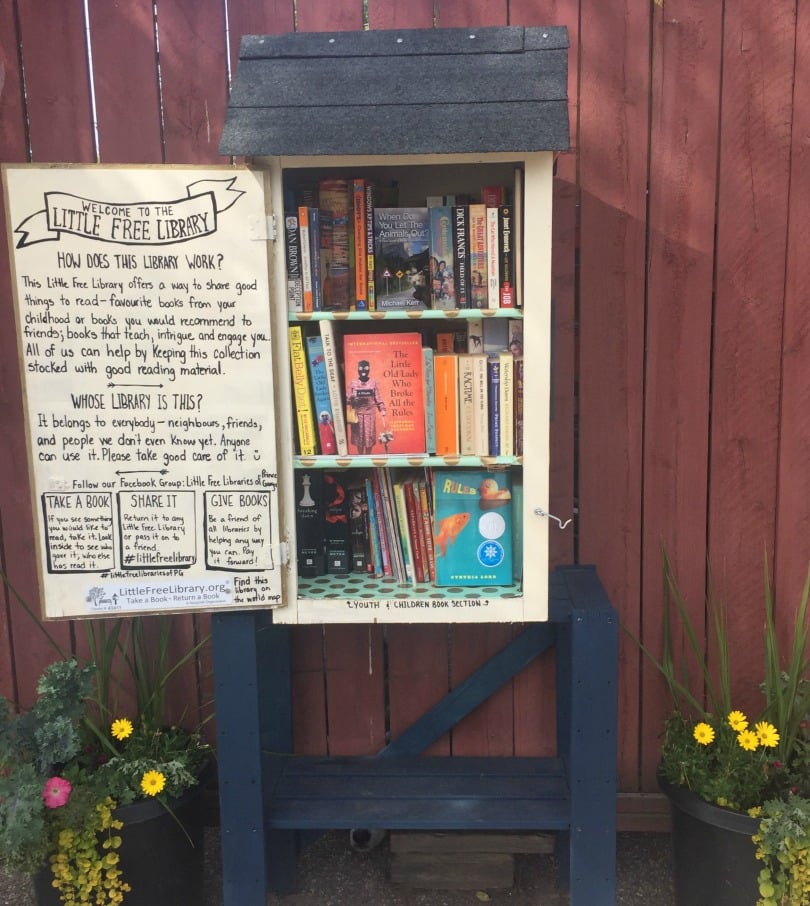 WELCOME TO THE
LITTLE FREE LIBRARY
HOW DOES THIS LIBRARY WORK?
This Little Free Library offers a way to share good
things to read - favourite books from your
childhood or books you would recommend to
friends; books that teach, intrigue and engage you.
All of us can help by keeping this collection
stocked with good reading material.
WHOSE LIBRARY IS THIS?
It belongs to everybody - neighbours, friends,
and people we don't even know yet. Anyone
can use it. Please take good care of it.
Follow our Facebook Group: Little Free Libraries of Prince
George
TAKE A BOOK
If you see something
you would like to
read, take it. Look
inside to see who
gave it, who else
has read it.
SHARE IT
Return it to any
Little Free Library
or pass it on to
a friend.
#littlefreelibrary
GIVE BOOKS
Be a friend of
all libraries by
helping any way
you can. Pay
it forward!
#littlefreelibrariesofPG
LittleFreeLibrary.org
Take a Book • Return a Book
Find this
library on
the world
map
DAN BROWN
When Do
You Let The
Animals Out?
Michael Kerr
DICK FRANCIS
Janet Evanovich
THE JOB
Flat Belly Diet!
TALK TO THE DEAF
INTERNATIONAL BESTSELLER
The
Little
Old Lady
Who
Broke
All the
Rules
RAGTIME
breaking dawn
RULES
CYNTHIA LORD
YOUTH & CHILDREN BOOK SECTION